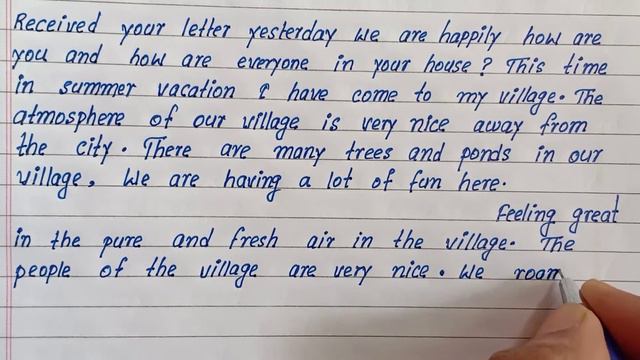 Received your letter yesterday We are happily how are
you and how are everyone in your house? This time
in summer vacation I have come to my village. The
atmosphere of our village is very nice away from
the city. There are many trees and ponds in our
village, We are having a lot of fun here.
Feeling great
in the pure and fresh air in the village. The
people of the village are very nice. We roam